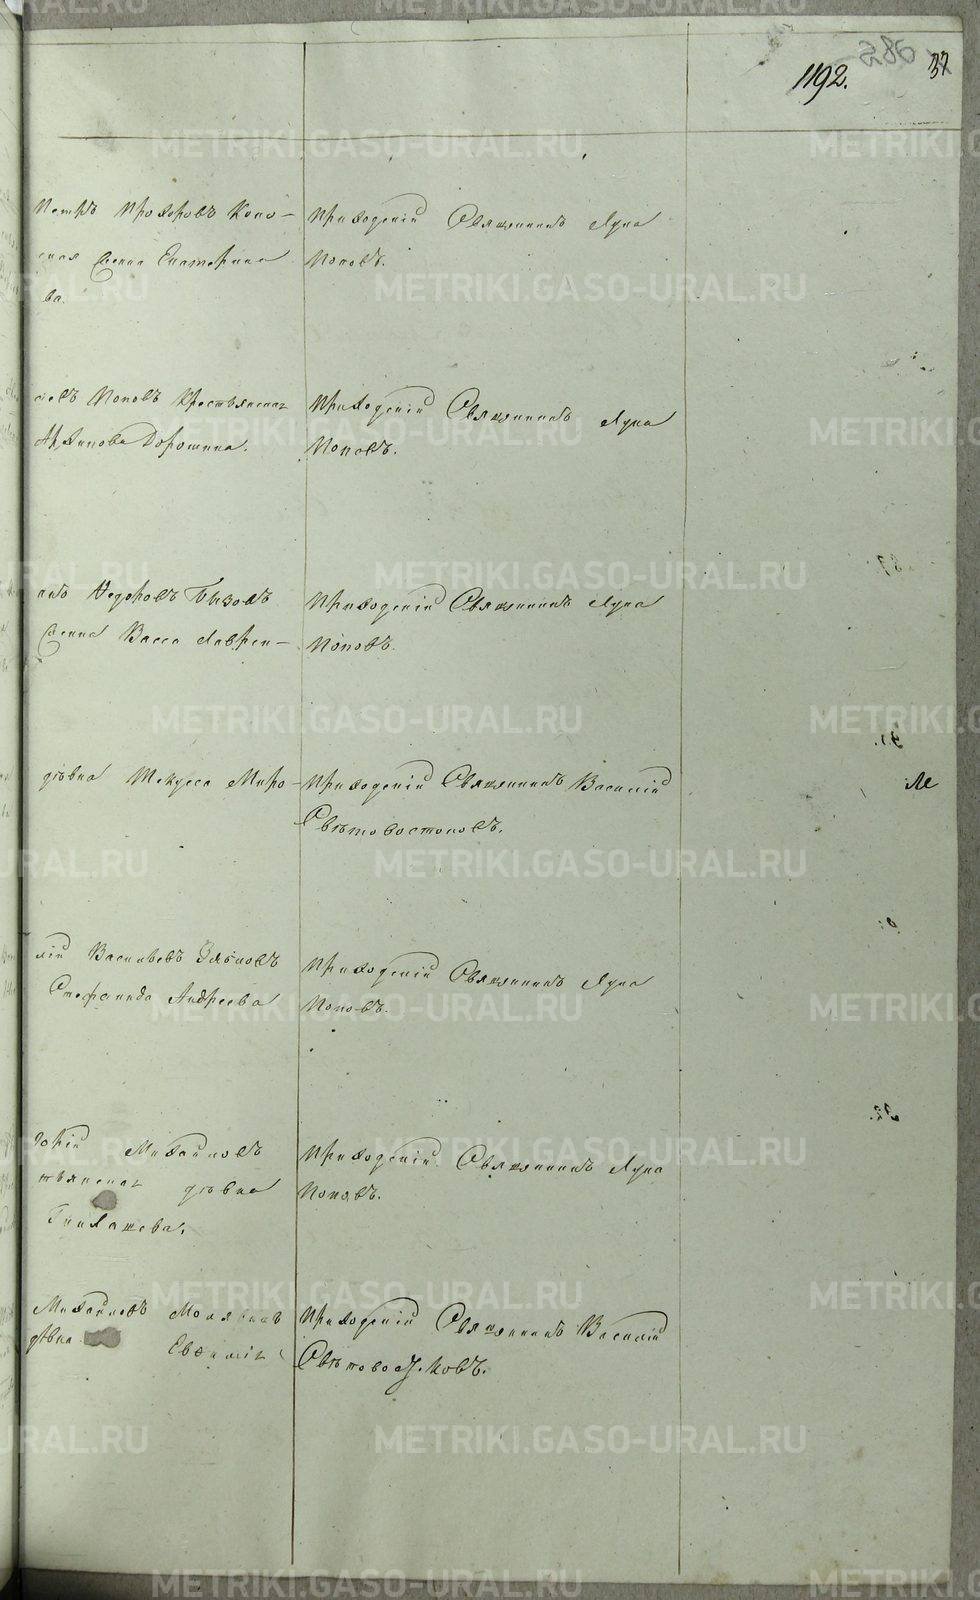 1192.
37
Петръ Прохоровъ Коно-
Жена Екатерина
ва.
Приходскій Священникъ Лука
Поповъ.
Поповъ Крестьянская
Архипова Дорошина.
Приходскій Священникъ Лука
Поповъ.
Федоровъ Бызовъ
Жена Васса Лаврен-
Приходскій Священникъ Лука
Поповъ.
дѣвка Текуса Миро-
Приходскій Священникъ Василій
Свѣтовостоковъ.
лій Васильевъ Зябловъ
Стефанида Андреева
Приходскій Священникъ Лука
Поповъ.
горій Михайловъ
тьянская дѣвка
Приходскій Священникъ Лука
Поповъ.
Михайловъ
дѣвка Евфимія
Приходскій Священникъ Василій
Свѣтовостоковъ.
METRIKI.GASO-URAL.RU